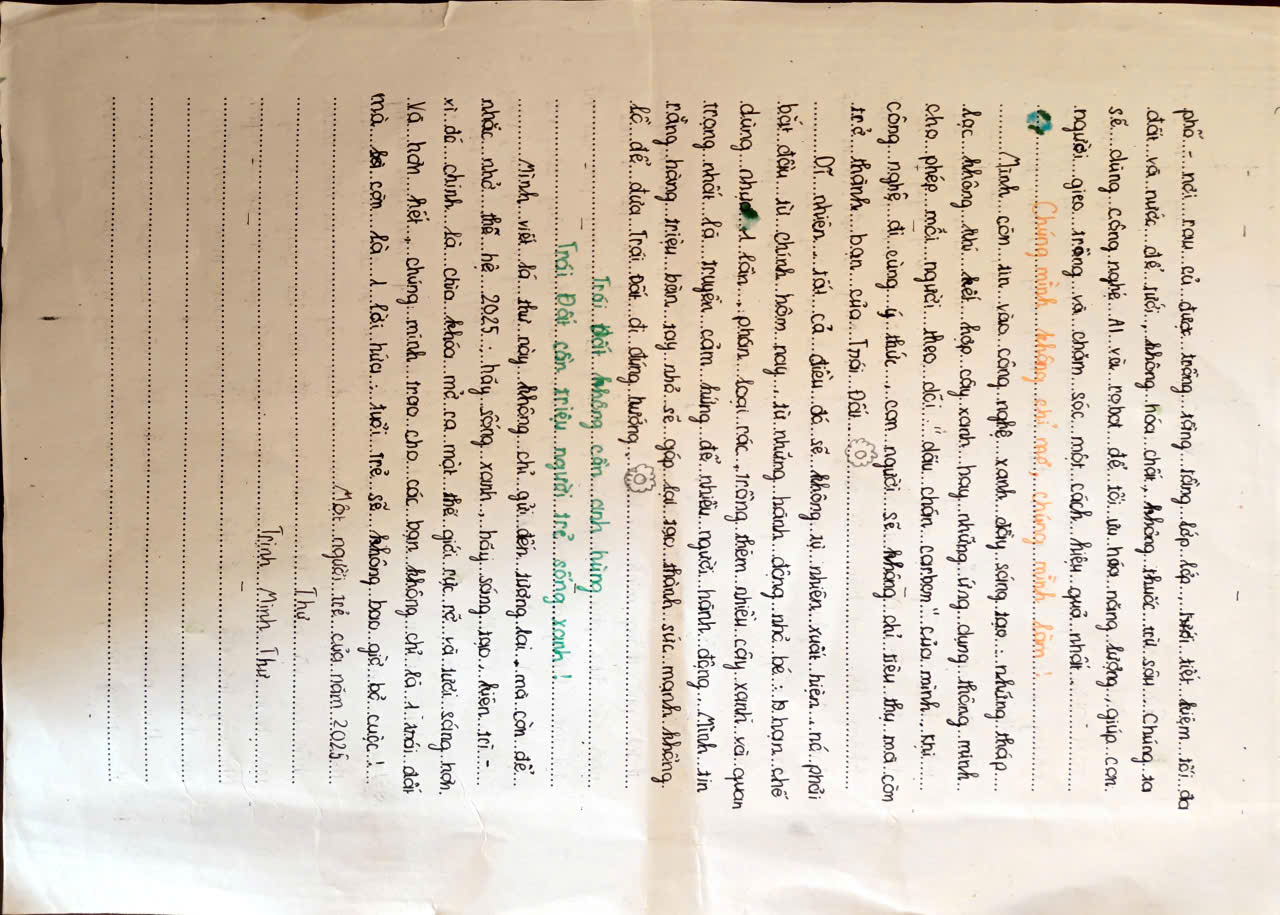 phố - nơi rau củ được trồng tầng tầng lớp lớp, tưới tiết kiệm tối đa
đất và nước để tưới, không hóa chất, không thuốc trừ sâu. Chúng ta
sẽ dùng công nghệ AI và robot để tối ưu hóa năng lượng, giúp con
người gieo trồng và chăm sóc một cách hiệu quả nhất.
Chúng mình không chỉ mơ, chúng mình làm!
Mình còn tin vào công nghệ xanh đầy sáng tạo: những tháp
lọc không khí kết hợp cây xanh hay những ứng dụng thông minh
cho phép mỗi người theo dõi "dấu chân carbon" của mình, khi
công nghệ đi cùng ý thức, con người sẽ không chỉ tiêu thụ mà còn
trở thành bạn của Trái Đất.
Dĩ nhiên, tất cả điều đó sẽ không tự nhiên xuất hiện, nó phải
bắt đầu từ chính hôm nay, từ những hành động nhỏ bé: hạn chế
dùng nhựa 1 lần, phân loại rác, trồng thêm nhiều cây xanh và quan
trọng nhất là truyền cảm hứng để nhiều người hành động. Mình tin
rằng hàng triệu bàn tay nhỏ sẽ góp lại tạo thành sức mạnh khổng
lồ để đưa Trái Đất đi đúng hướng.
Trái Đất không cần anh hùng
Trái Đất cần triệu người trẻ sống xanh!
Mình viết lá thư này không chỉ gửi đến tương lai, mà còn để
nhắc nhở thế hệ 2025: hãy sống xanh, hãy sáng tạo, kiên trì -
vì đó chính là chìa khóa mở ra một thế giới rực rỡ và tươi sáng hơn.
Và hơn hết, chúng mình trao cho các bạn không chỉ là 1 trái đất
mà còn là 1 lời hứa: tuổi trẻ sẽ không bao giờ bỏ cuộc!
Một người trẻ của năm 2025
Thư
Trịnh Minh Thư